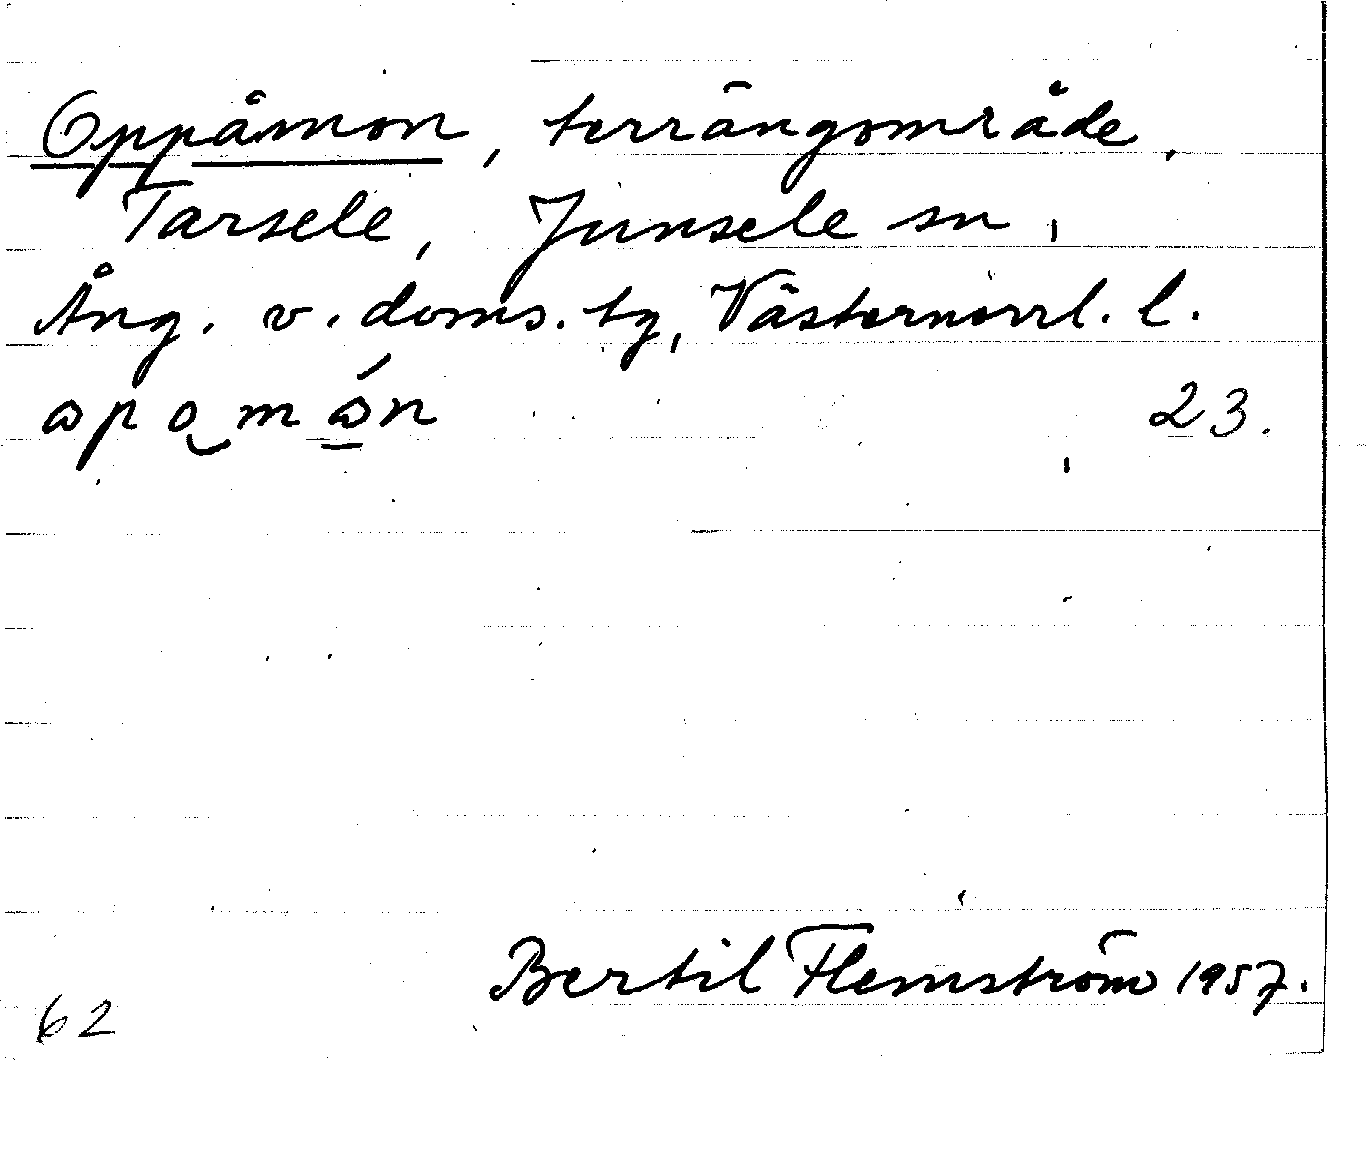 Oppåmon, terrängområde,
Tarsele, Junsele sn,
Ång. v. doms. tg, Västernorrl. l.
ɷpo̮mɷ̠́n 23.
Bertil Flemström 1957.
62